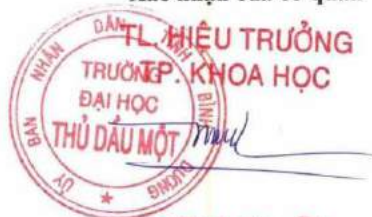 TL. HIỆU TRƯỞNG
TP. KHOA HỌC
ỦY BAN NHÂN DÂN TỈNH BÌNH DƯƠNG
TRƯỜNG
ĐẠI HỌC
THỦ DẦU MỘT